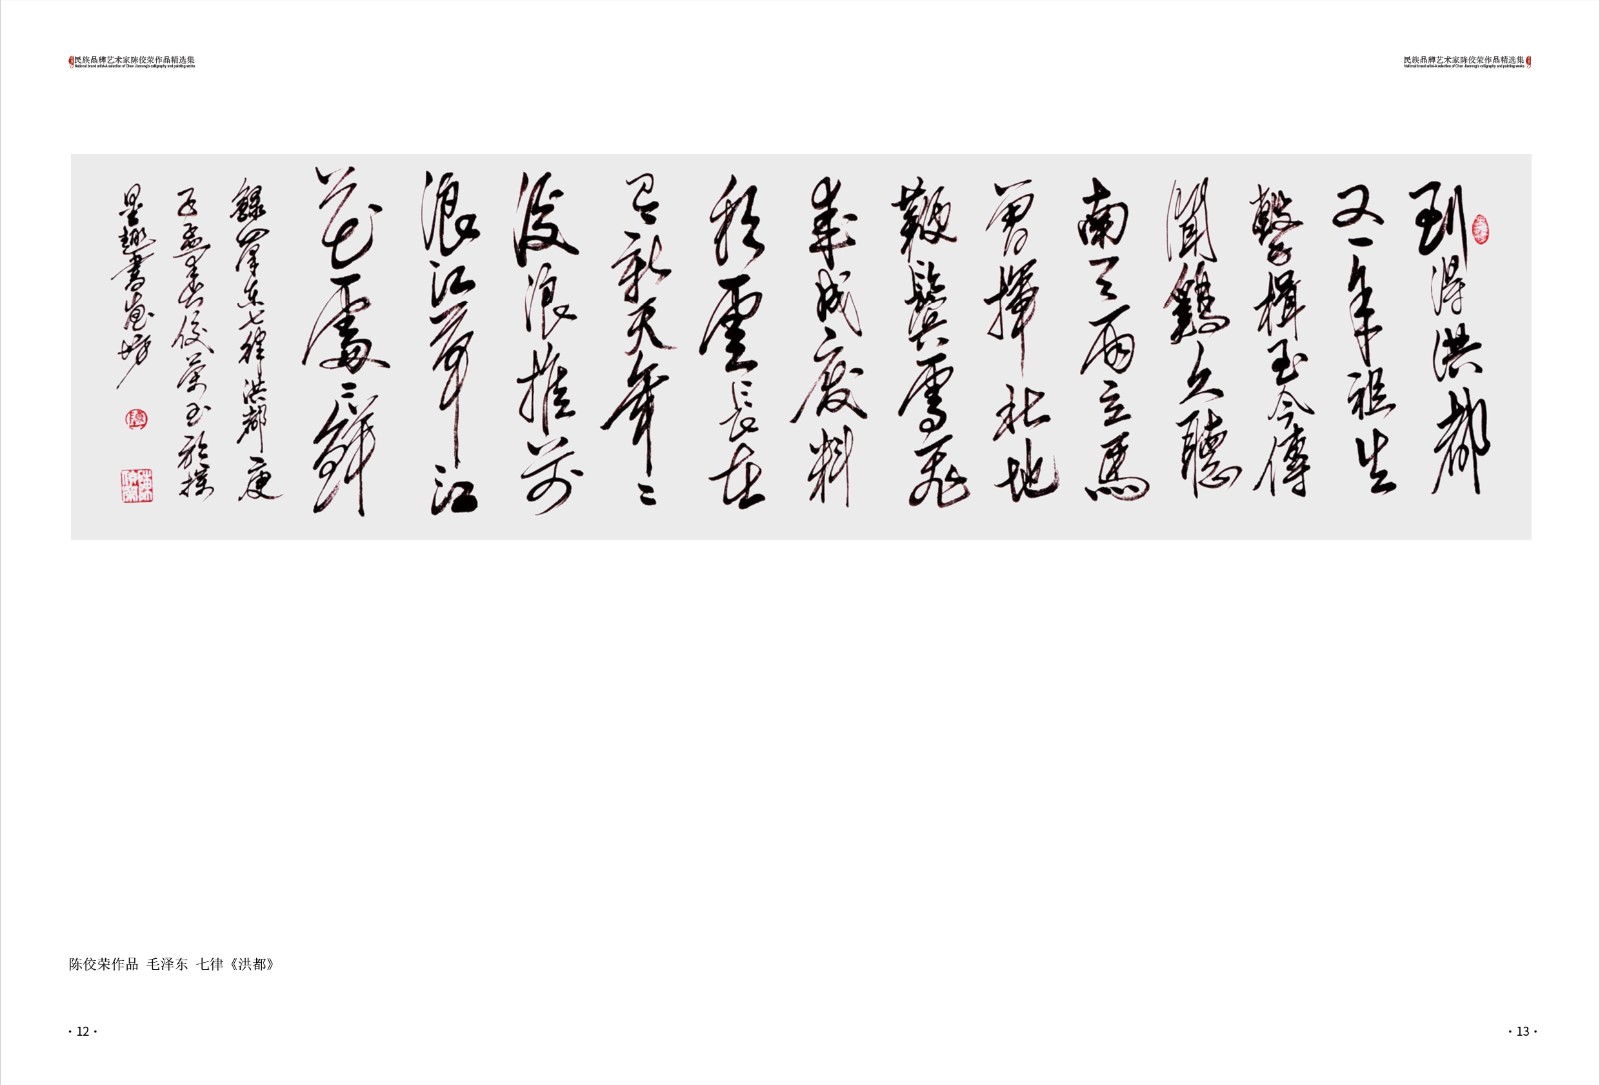 民族品牌艺术家陈佼荣作品精选集
National brand artist-A selection of Chen Jiaorong's calligraphy and painting works
民族品牌艺术家陈佼荣作品精选集
National brand artist-A selection of Chen Jiaorong's calligraphy and painting works
到得洪都
又一年祖生
擊楫至今傳
聞鷄久聽
南天雨立馬
曾揮北地
鞭鬢雪飛
来成廢料
彩雲長在
有新天年々
後浪推前
浪江草江
花處々鮮
錄毛澤東七律洪都庚
子孟春佼荣书於
墨趣書畫坊
陈佼荣作品 毛泽东 七律《洪都》
·12·
·13·